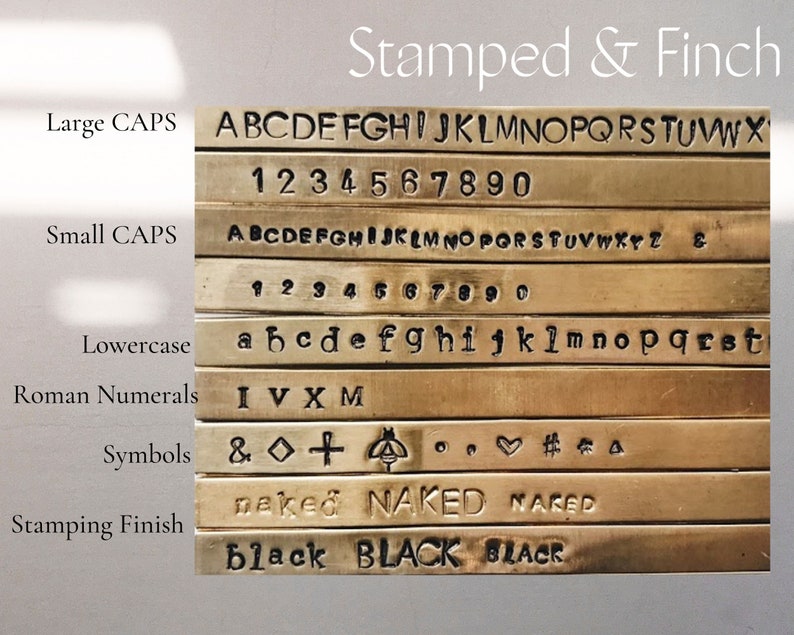 Stamped & Finch
Large CAPS
ABCDEFGHIJKLMNOPQRSTUVWX
1 2 3 4 5 6 7 8 9 0
Small CAPS
ABCDEFGHIJKLMNOPQRSTUVWXYZ &
1 2 3 4 5 6 7 8 9 0
Lowercase
a b c d e f g h i j k l m n o p q r s t
Roman Numerals
I V X M
Symbols
& ◇ + • , ♡ # * △
Stamping Finish
naked NAKED NAKED
black BLACK BLACK